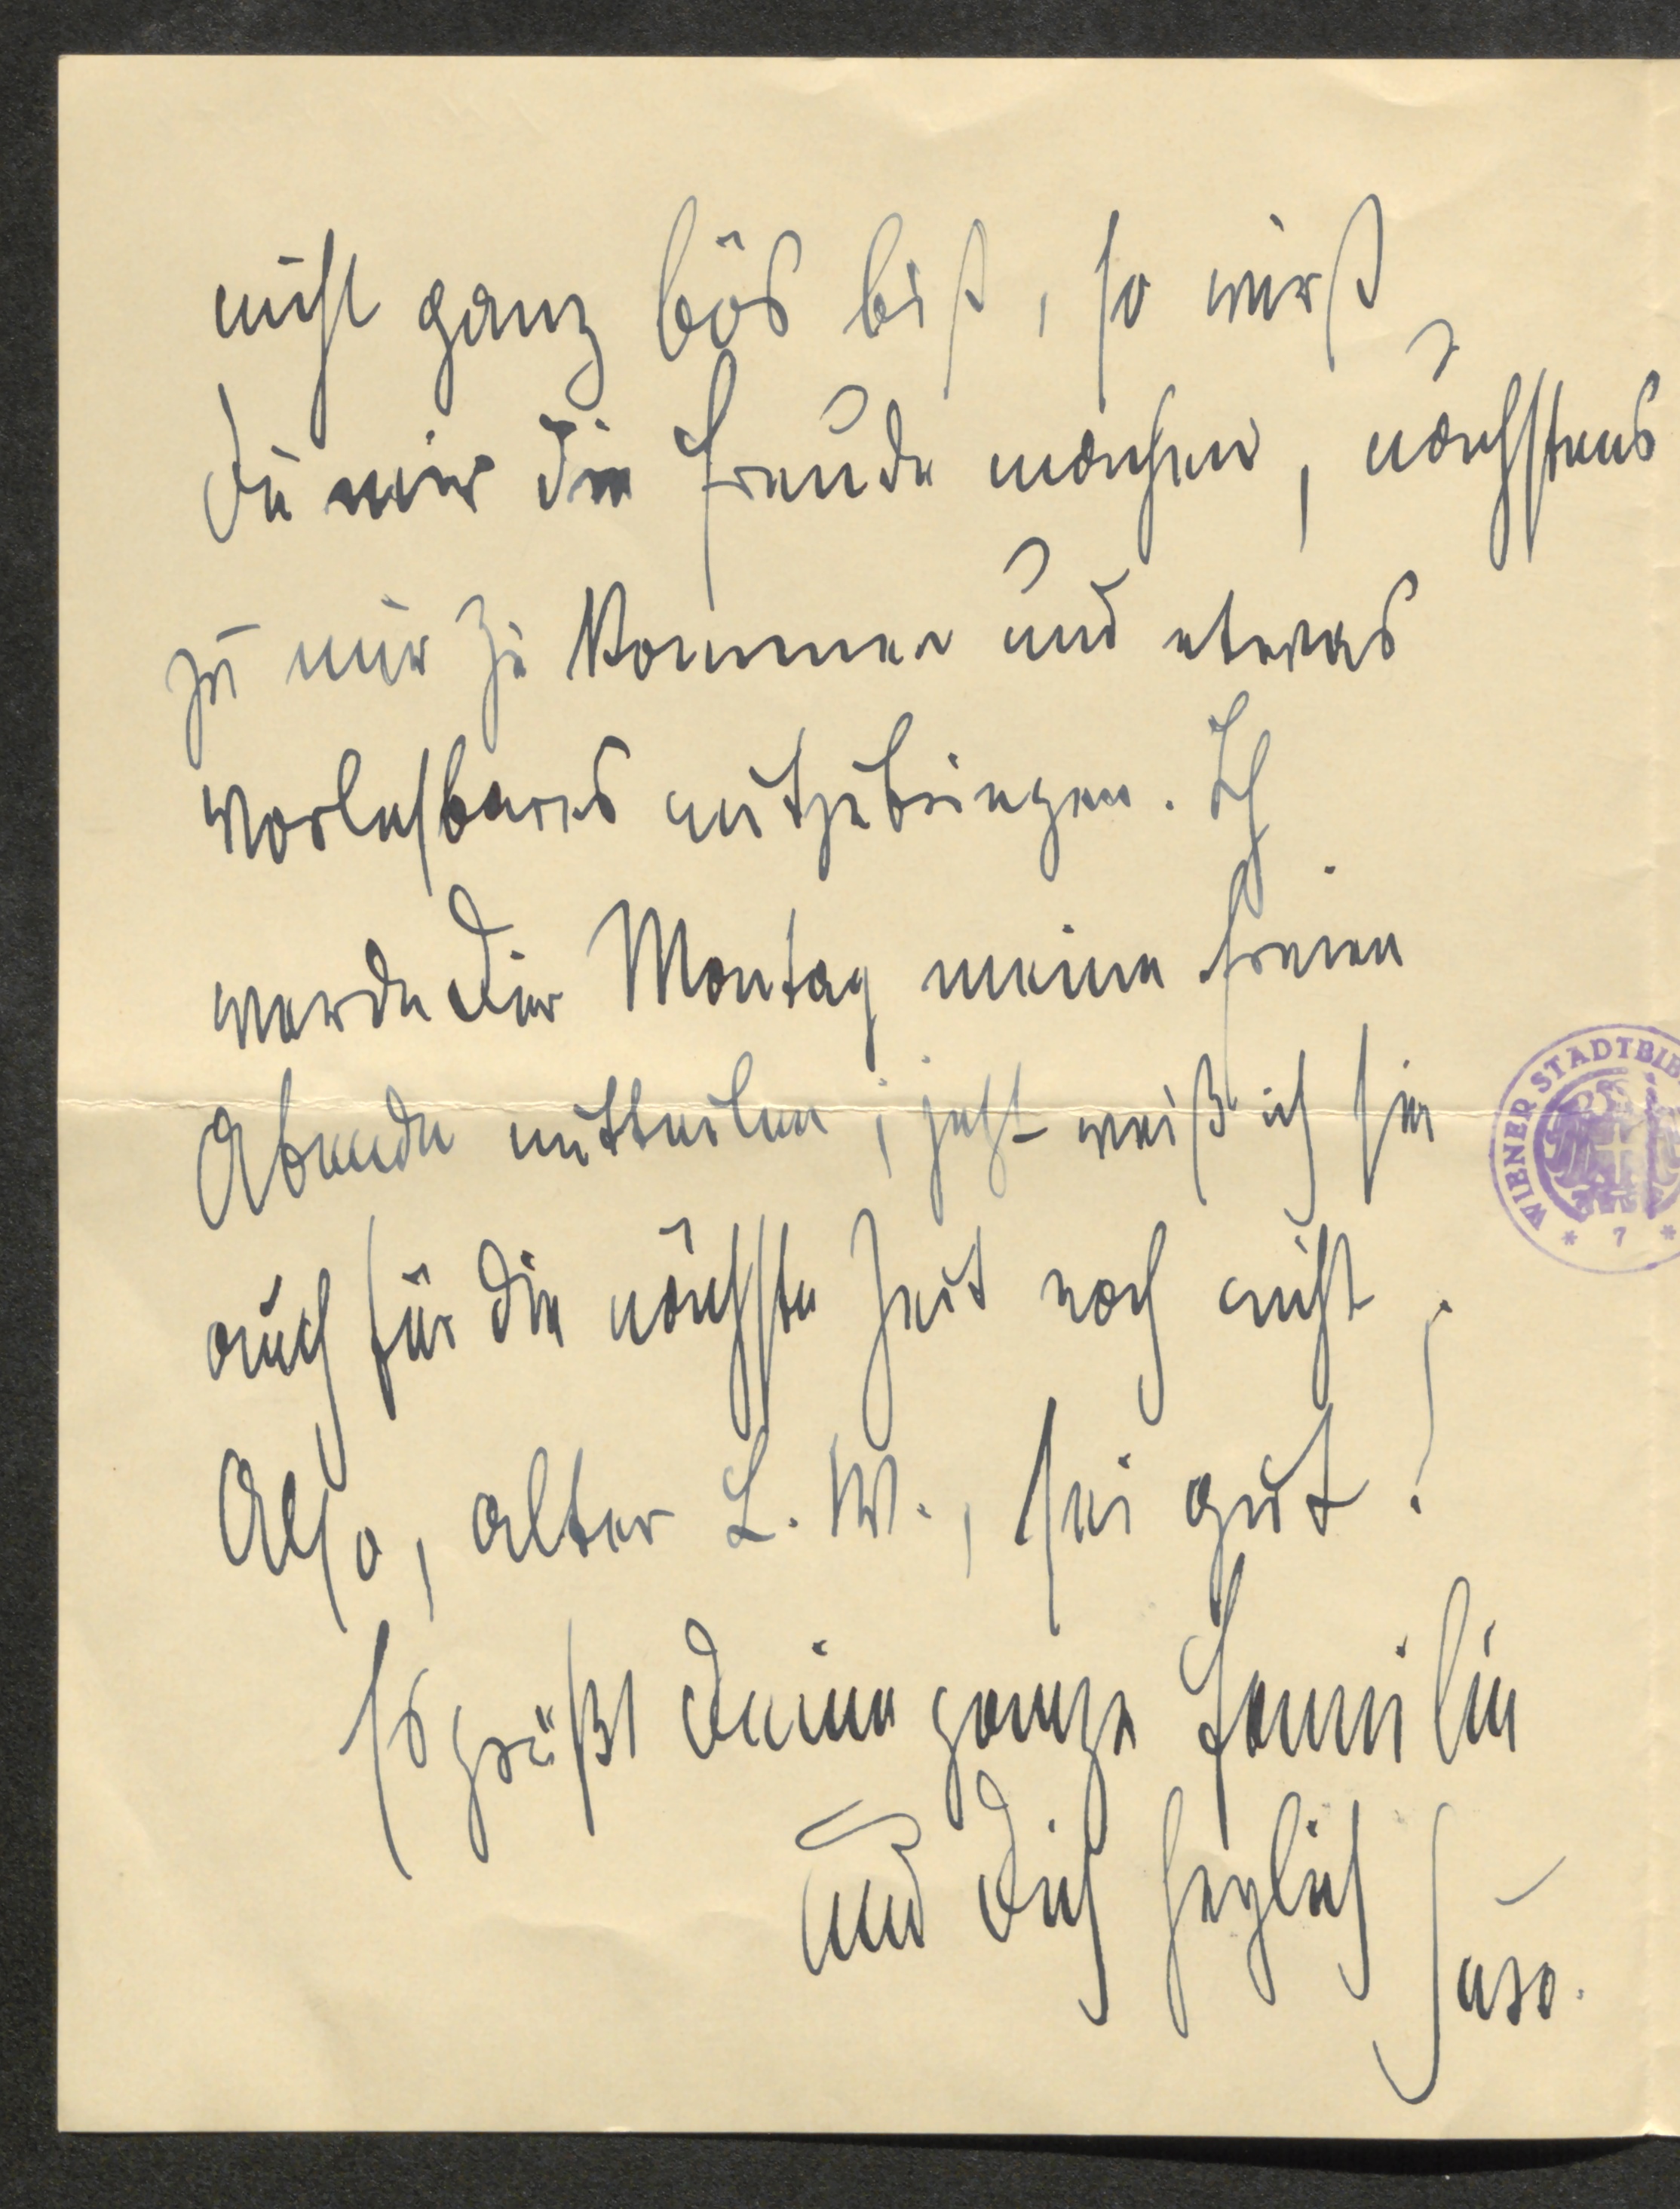 nicht ganz bös bist, so wirst
Du mir die Freude machen, nächstens
zu mir zu kommen und etwas
Vorlesbares mitzubringen. Ich
werde Dir Montag meine freien
Abende mitteilen; jetzt weiß ich sie
auch für die nächste Zeit noch nicht.
Also, alter L. W., sei gut!
Es grüßt Deine ganze Familie
und Dich herzlich
WIENER STADTBIB
* 7 *